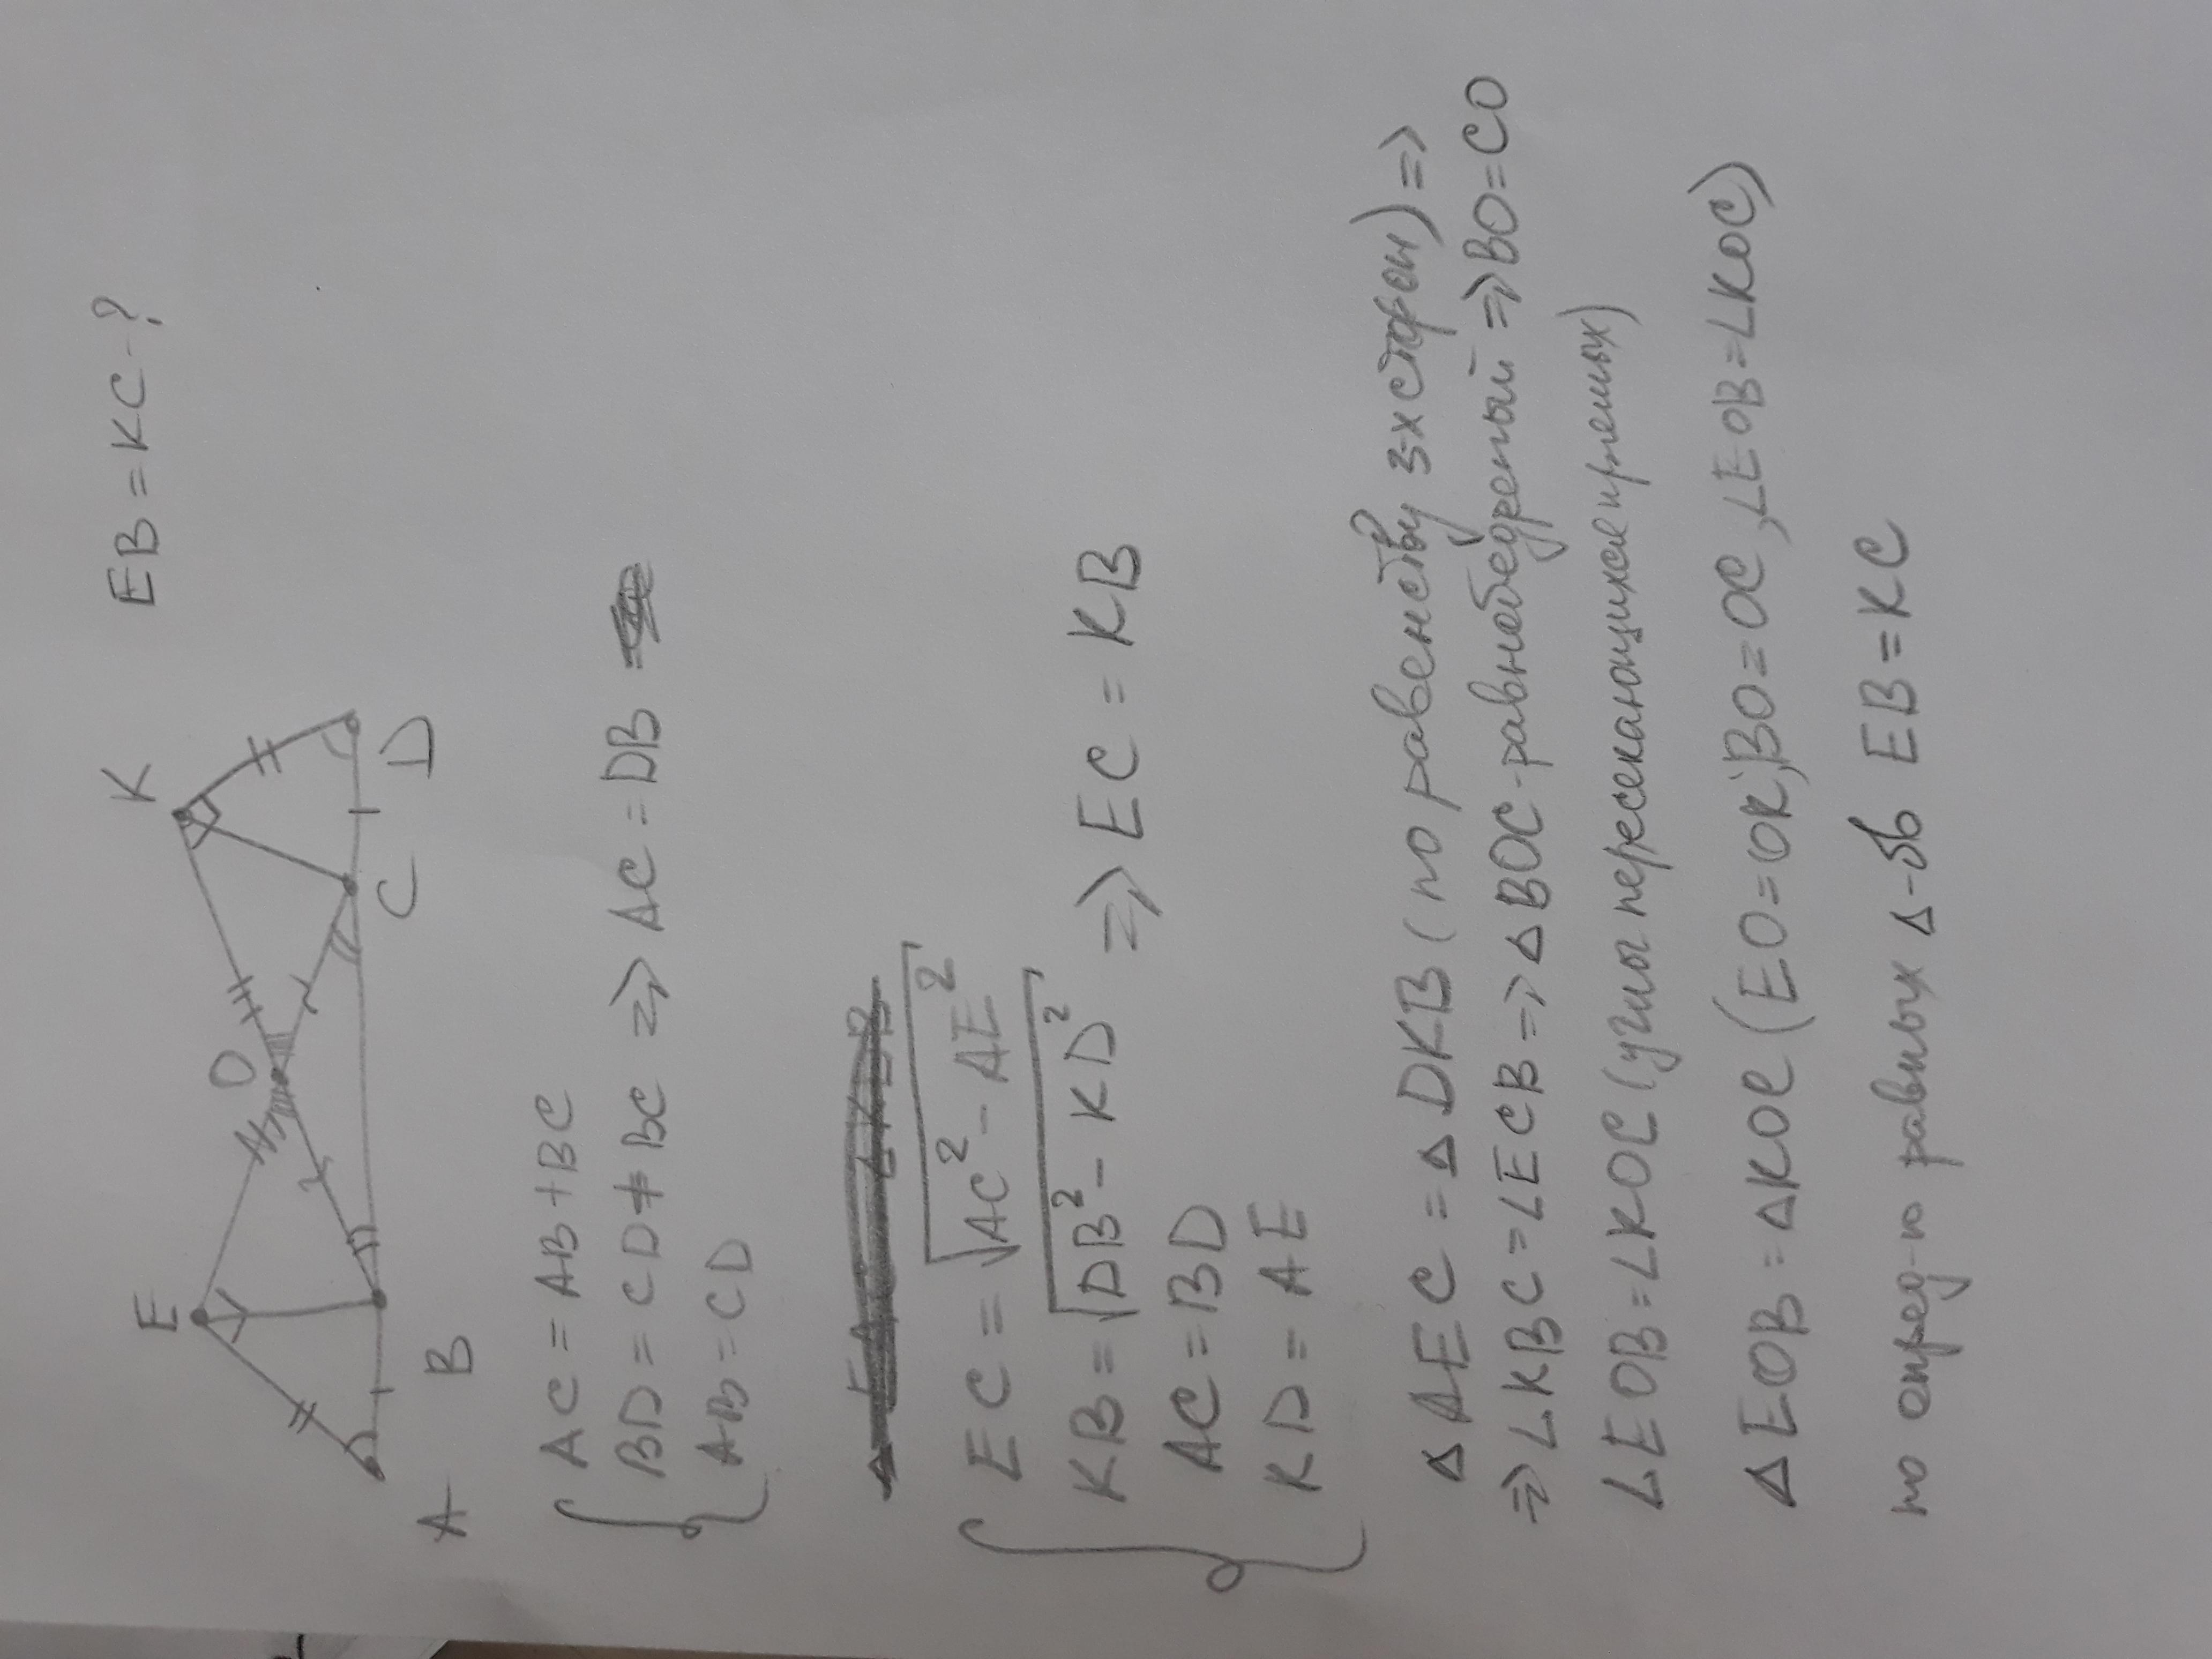 EB = KC - ?
E
O
K
A
B
C
D
AC = AB + BC
BD = CD + BC => AC = DB
AB = CD
EC = √AC² - AE²
KB = √DB² - KD² => EC = KB
AC = BD
KD = AE
Δ AEC = Δ DKB (по равенству 3-х сторон) =>
=> ∠KBC = ∠ECB => Δ BOC - равнобедреный => BO = CO
∠EOB = ∠KOC (углы пересекающихся прямых)
Δ EOB = Δ KOC (EO = OK, BO = OC, ∠EOB = ∠KOC)
по опред-ю равных Δ-ов EB = KC